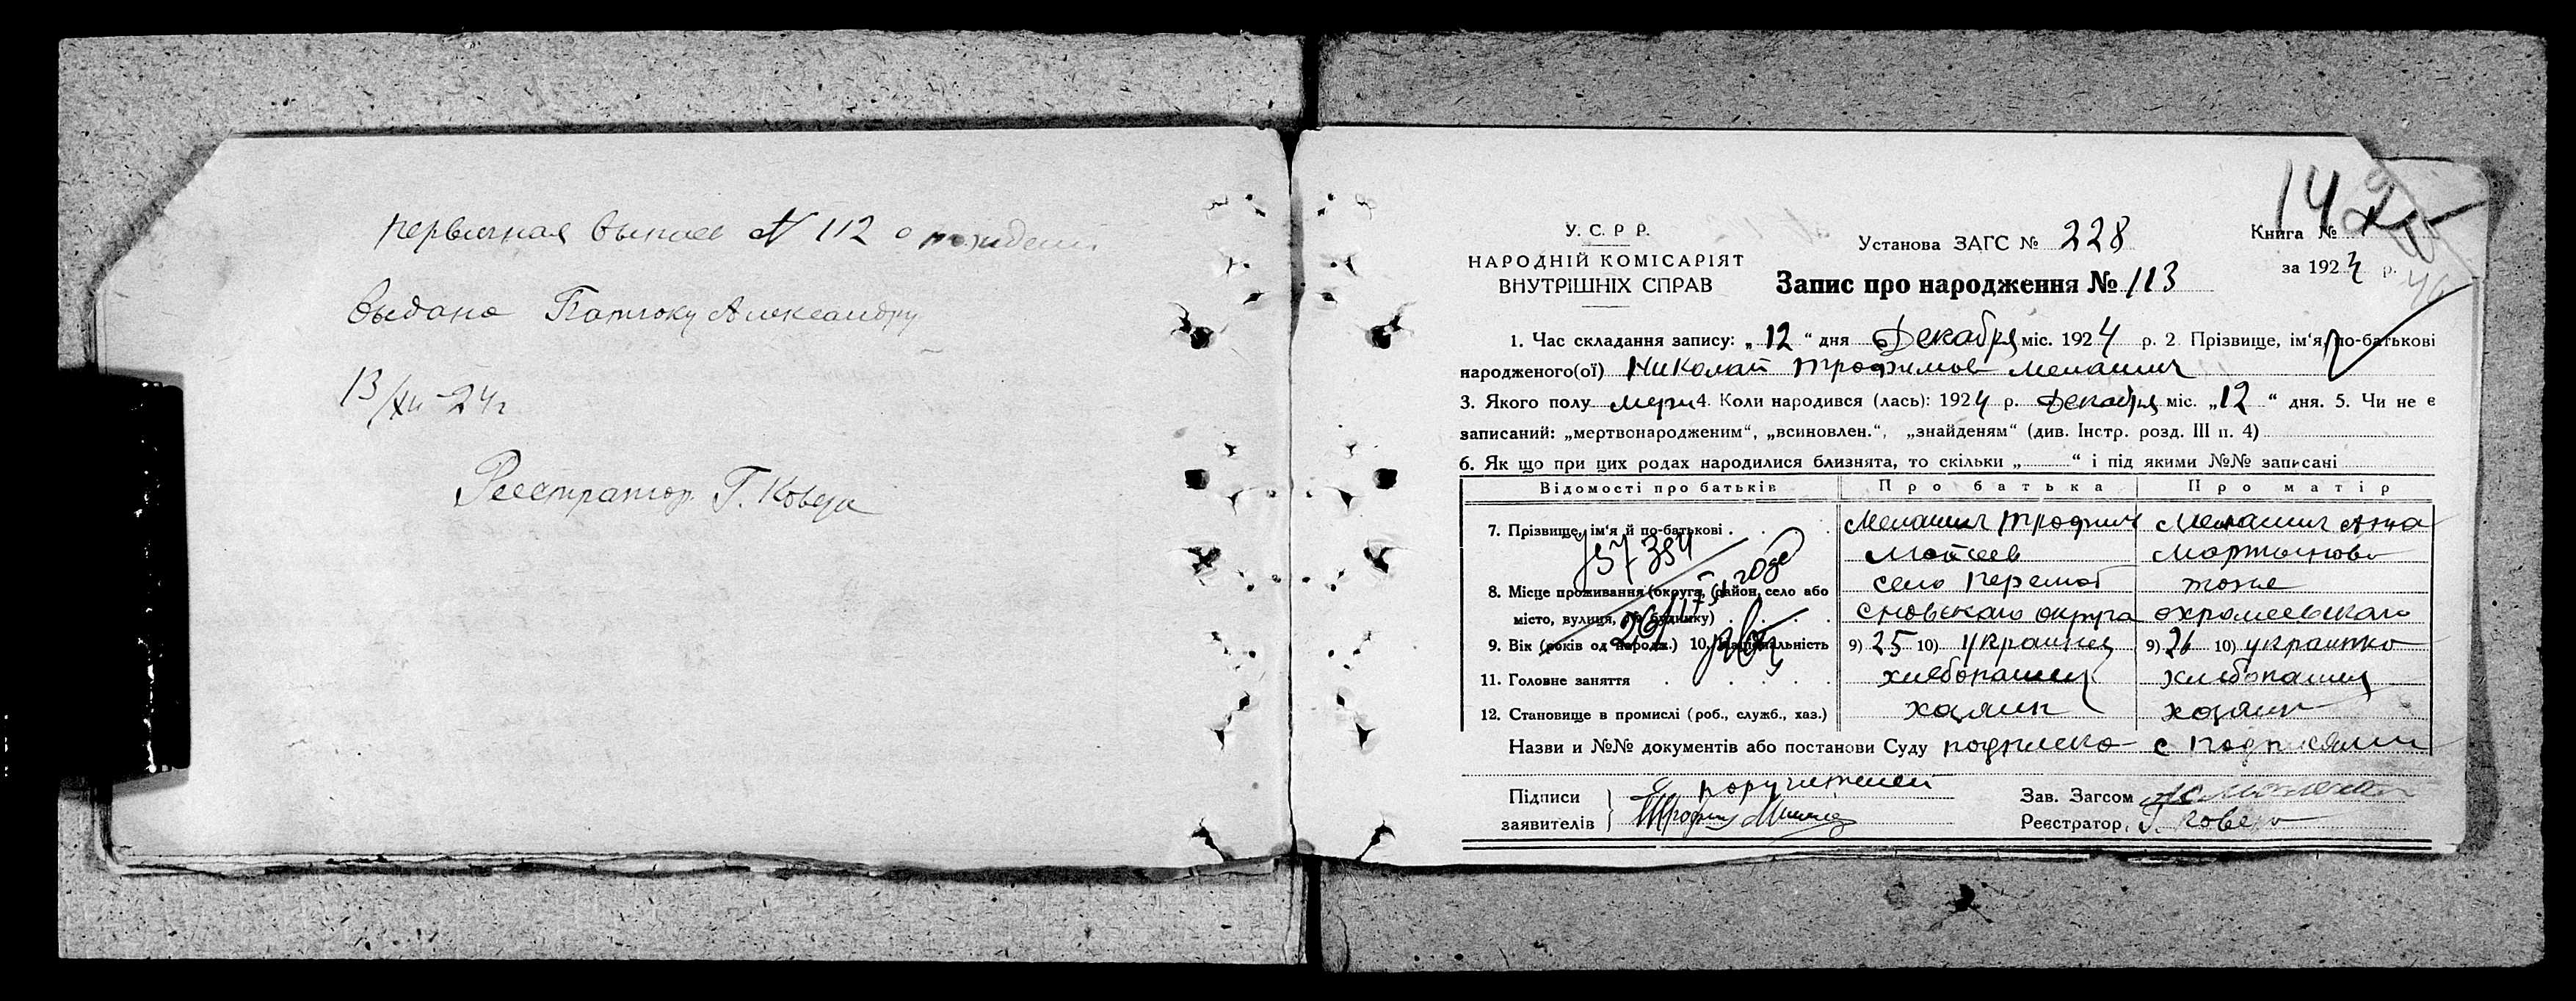 первичная выпись № 112 о рождени
выдана Патоку Александру
13/XII-24г
Регистратор Г. Ковера
142
У. С. Р Р.
НАРОДНІЙ КОМІСАРІЯТ
ВНУТРІШНІХ СПРАВ
Установа ЗАГС № 228
Запис про народження № 113
Книга №
за 1924 р.
1. Час складання запису: „ 12 “ дня Декабря міс. 1924 р. 2 Прізвище, ім‘я, по-батькові
народженого(ої) Николай Трофимов
3. Якого полу муж 4. Коли народився (лась): 1924 р. Декабря міс. „12“ дня. 5. Чи не є
записаний: „мертвонародженим“, „всиновлен.“, „знайденям“ (див. Інстр. розд. III п. 4)
6. Як що при цих родах народилися близнята, то скільки „ “ і під якими №№ записані
Відомості про батьків Про батька Про матір
7. Прізвище, ім‘я й по-батькові Трофим Анна
Моисеев Мартынова
8. Місце проживання (округа, район, село або село тоже
місто, вулиця, № будинку) Сновскаго округа
9. Вік (років од народж.) 10. Національність 9) 25 10) украинец 9) 26 10) украинка
11. Головне заняття хлебопашец хлебопашец
12. Становище в промислі (роб., служб., хаз.) хозяин хозяин
Назви и №№ документів або постанови Суду подписка с подписями
поручителей
Підписи
заявителів Трофим
Зав. Загсом
Реєстратор. Г. Ковера